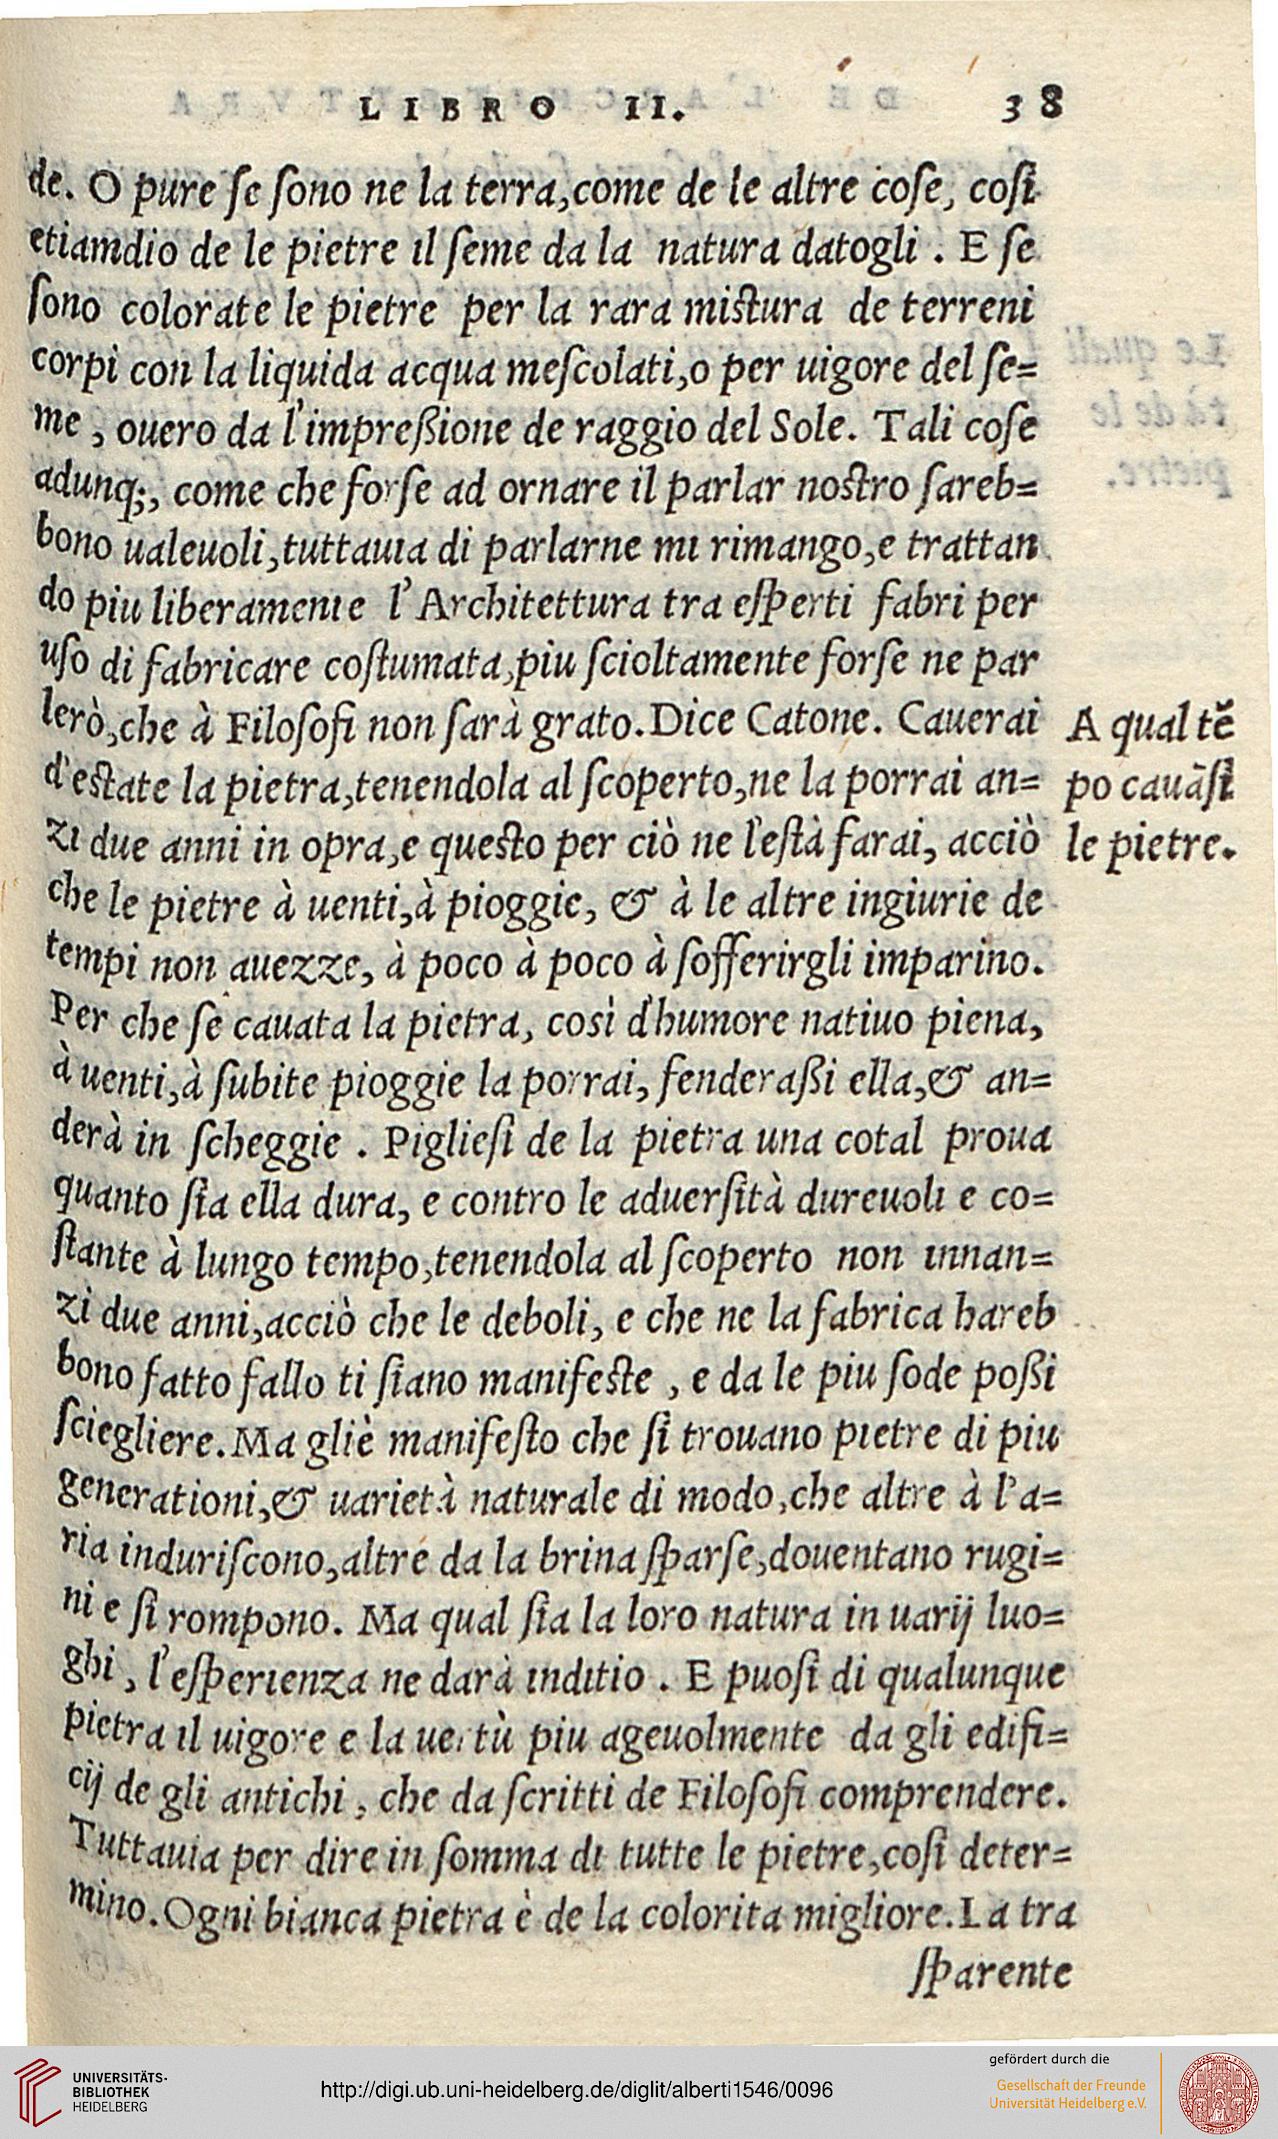 LIBRO II. 38
de. O pure se sono ne la terra,come de le altre cose, cosi
etiamdio de le pietre il seme da la natura datogli . E se
sono colorate le pietre per la rara mistura de terreni
corpi con la liquida acqua mescolati,o per uigore del se=
me , ouero da l'impreßione de raggio del Sole. Tali cose
adunq;, come che forse ad ornare il parlar nostro sareb=
bono ualeuoli,tuttauia di parlarne mi rimango,e trattan
do piu liberamente l'Architettura tra esperti fabri per
uso di fabricare costumata,piu scioltamente forse ne par
lerò,che à Filosofi non sarà grato.Dice Catone. Cauerai
d'estate la pietra,tenendola al scoperto,ne la porrai an=
zi due anni in opra,e questo per ciò ne l'està farai, acciò
che le pietre à uenti,à pioggie, & à le altre ingiurie de
tempi non auezze, à poco à poco à sofferirgli imparino.
Per che se cauata la pietra, così d'humore natiuo piena,
à uenti,à subite pioggie la porrai, fenderaßi ella,& an=
derà in scheggie . Pigliesi de la pietra una cotal proua
quanto sia ella dura, e contro le aduersità dureuoli e co=
stante à lungo tempo,tenendola al scoperto non innan=
zi due anni,acciò che le deboli, e che ne la fabrica hareb
bono fatto fallo ti siano manifeste , e da le piu sode poßi
sciegliere.Ma gliè manifesto che si trouano pietre di piu
generationi,& uarietà naturale di modo,che altre à l'a=
ria induriscono,altre da la brina sparse,douentano rugi=
ni e si rompono. Ma qual sia la loro natura in uarij luo=
ghi , l'esperienza ne darà inditio . E puosi di qualunque
pietra il uigore e la uertù piu ageuolmente da gli edifi=
cij de gli antichi , che da scritti de Filosofi comprendere.
Tuttauia per dire in somma di tutte le pietre,cosi deter=
mino.Ogni bianca pietra è de la colorita migliore.La tra
sparente
A qual tẽ
po cauãsi
le pietre.
UNIVERSITÄTS-
BIBLIOTHEK
HEIDELBERG
http://digi.ub.uni-heidelberg.de/diglit/alberti1546/0096
gefördert durch die
Gesellschaft der Freunde
Universität Heidelberg e.V.